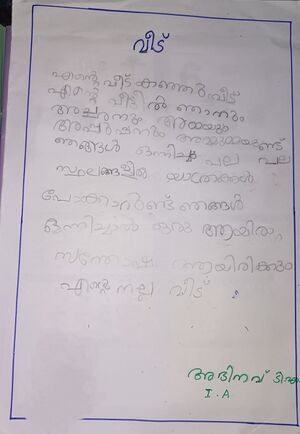 വീട്
എന്റെ വീട് കണ്ണൂർ വീട്
എന്റെ വീട്ടിൽ ഞാനും
അച്ഛനും അമ്മയും
അപ്പൂപ്പനും അമ്മൂമ്മയുണ്ട്
ഞങ്ങൾ ഒന്നിച്ചു പല പല
സ്ഥലങ്ങളിൽ യാത്രകൾ
പോകാറുണ്ട് ഞങ്ങൾ
ഒന്നിച്ചാൽ ഒരു ആയിരം
സന്തോഷം ആയിരിക്കും
എന്റെ നല്ല വീട്
അഭിനവ്
I.A